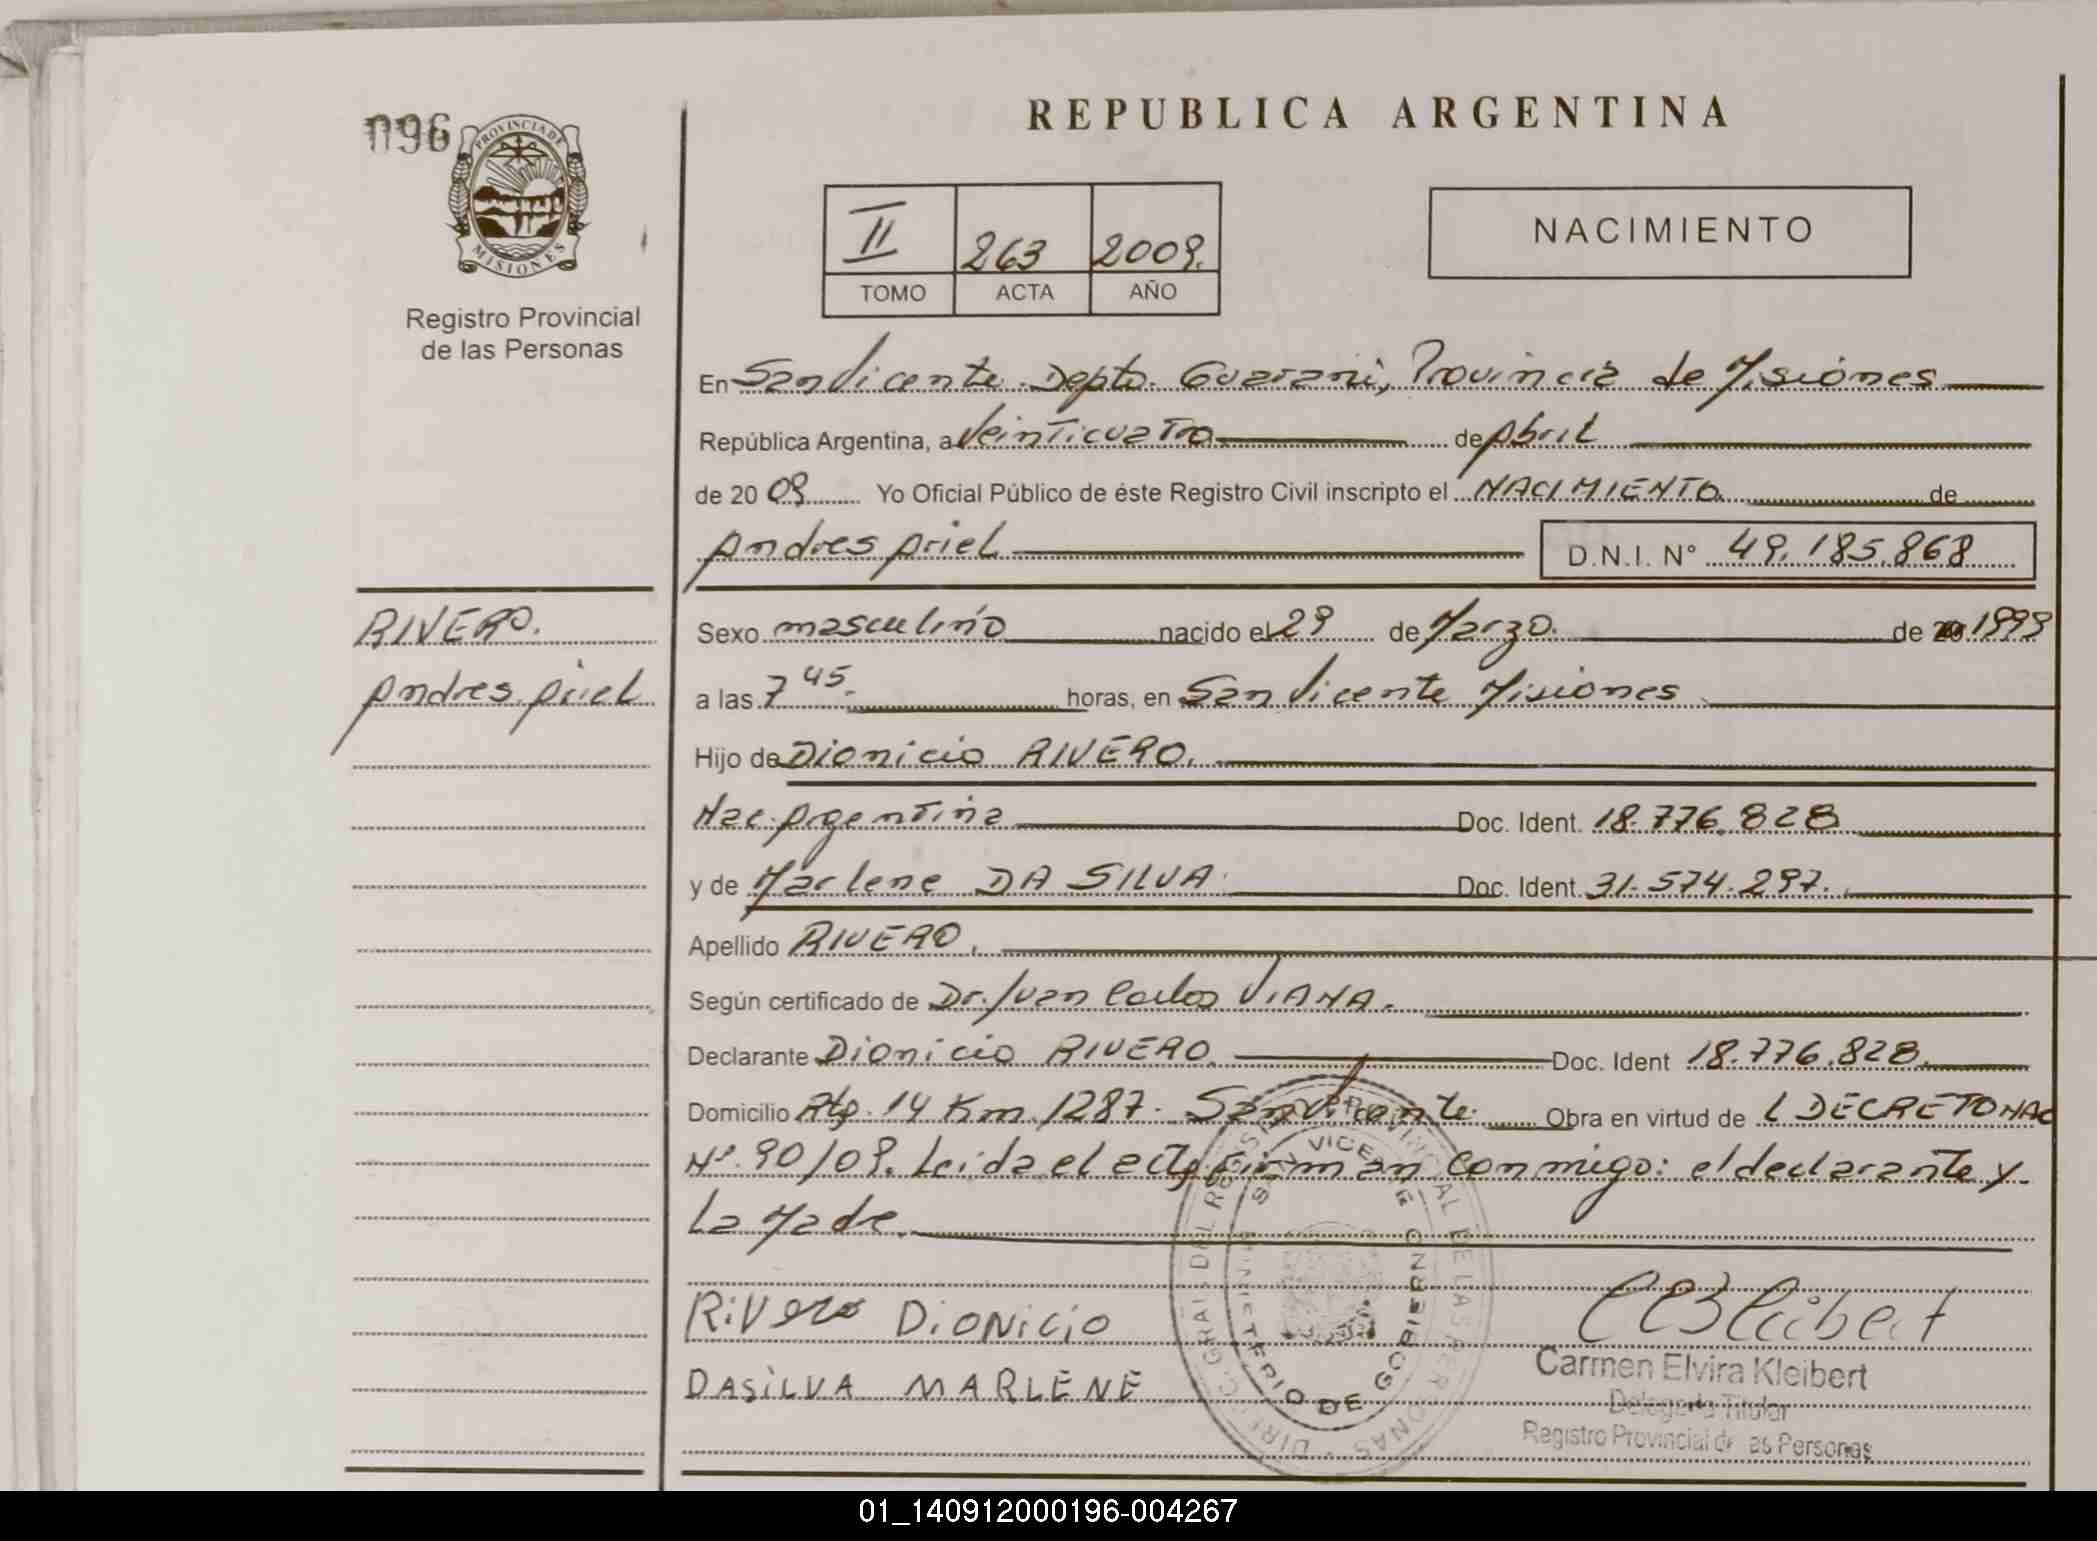 096
PROVINCIA DE
MISIONES
Registro Provincial
de las Personas
REPUBLICA ARGENTINA
II 263 2009.
TOMO ACTA AÑO
NACIMIENTO
En San Vicente. Depto. Guarani, Provincia de Misiones
República Argentina, a Veinticuatro de Abril
de 20 09 Yo Oficial Público de éste Registro Civil inscripto el NACIMIENTO de
Andres Ariel D.N.I. N° 49.185.868
RIVERO.
Andres Ariel
Sexo masculino nacido el 29 de Marzo. de 20 1999
a las 7 45. horas, en San Vicente Misiones
Hijo de Dionicio RIVERO.
Nac. Argentina Doc. Ident. 18.776.828
y de Marlene DA SILVA. Doc. Ident. 31.574.297.
Apellido RIVERO.
Según certificado de Dr. Juan Carlos VIANA.
Declarante Dionicio RIVERO. Doc. Ident 18.776.828.
Domicilio Rta. 14 Km. 1287. San Vicente. Obra en virtud de L DECRETO NAC
N°. 90/09. Leida el acta firman conmigo: el declarante y
La Madre.
RiVero DiONiCio
DASiLVA MARLENE
DIREC. GRAL. DEL REGISTRO PROVINCIAL DE LAS PERSONAS
SAN VICENTE
MINISTERIO DE GOBIERNO
CEKleibert
Carmen Elvira Kleibert
Delegada Titular
Registro Provincial de las Personas
01_140912000196-004267